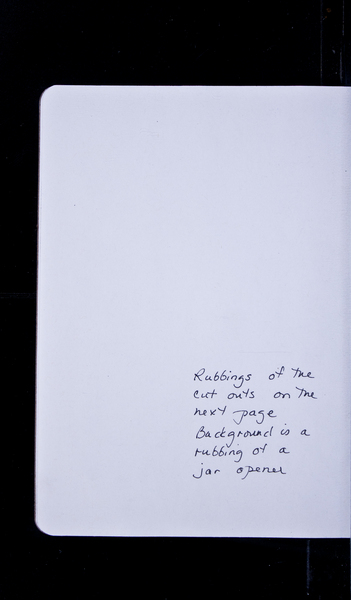 Rubbings of the
cut outs on the
next page
Background is a
rubbing of a
jar opener